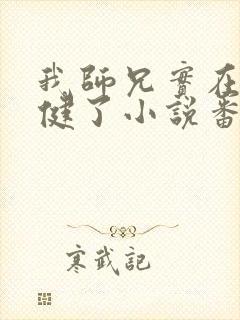 我師兄實在
健了小說番
寒武記